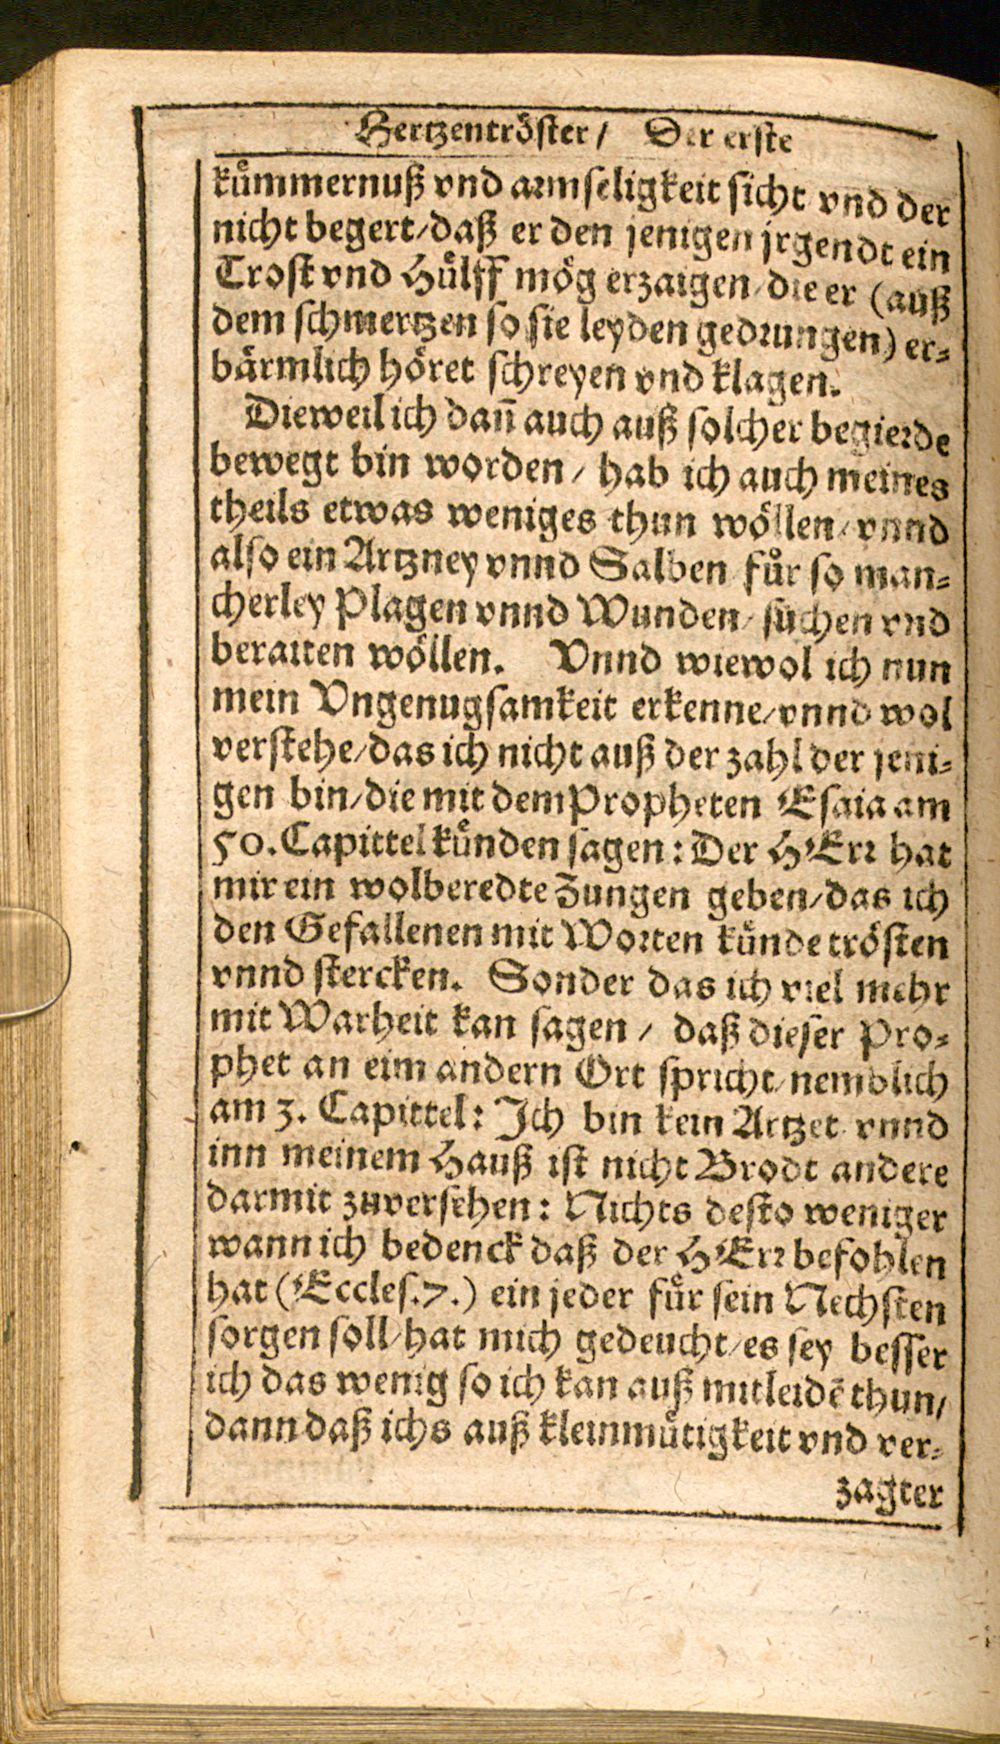 Hertzentröster / Der erste
kümmernuß vnd armseligkeit sicht vnd der
nicht begert / daß er den jenigen jrgendt ein
Trost vnd Hülff mög erzaigen / die er (auß
dem schmertzen so sie leyden gedrungen) er⸗
bärmlich höret schreyen vnd klagen.
Dieweil ich dañ auch auß solcher begierde
bewegt bin worden / hab ich auch meines
theils etwas weniges thun wöllen / vnnd
also ein Artzney vnnd Salben für so man⸗
cherley Plagen vnnd Wunden / suchen vnd
beraiten wöllen. Vnnd wiewol ich nun
mein Vngenugsamkeit erkenne / vnnd wol
verstehe / das ich nicht auß der zahl der jeni⸗
gen bin / die mit dem Propheten Esaia am
50. Capittel künden sagen: Der HErr hat
mir ein wolberedte Zungen geben / das ich
den Gefallenen mit Worten künde trösten
vnnd stercken. Sonder das ich viel mehr
mit Warheit kan sagen / daß dieser Pro⸗
phet an eim andern Ort spricht / nemblich
am 3. Capittel: Ich bin kein Artzet vnnd
inn meinem Hauß ist nicht Brodt andere
darmit zuversehen: Nichts desto weniger
wann ich bedenck daß der HErr befohlen
hat (Eccles. 7.) ein jeder für sein Nechsten
sorgen soll / hat mich gedeucht / es sey besser
ich das wenig so ich kan auß mitleidē thun /
dann daß ichs auß kleinmütigkeit vnd ver⸗
zagter